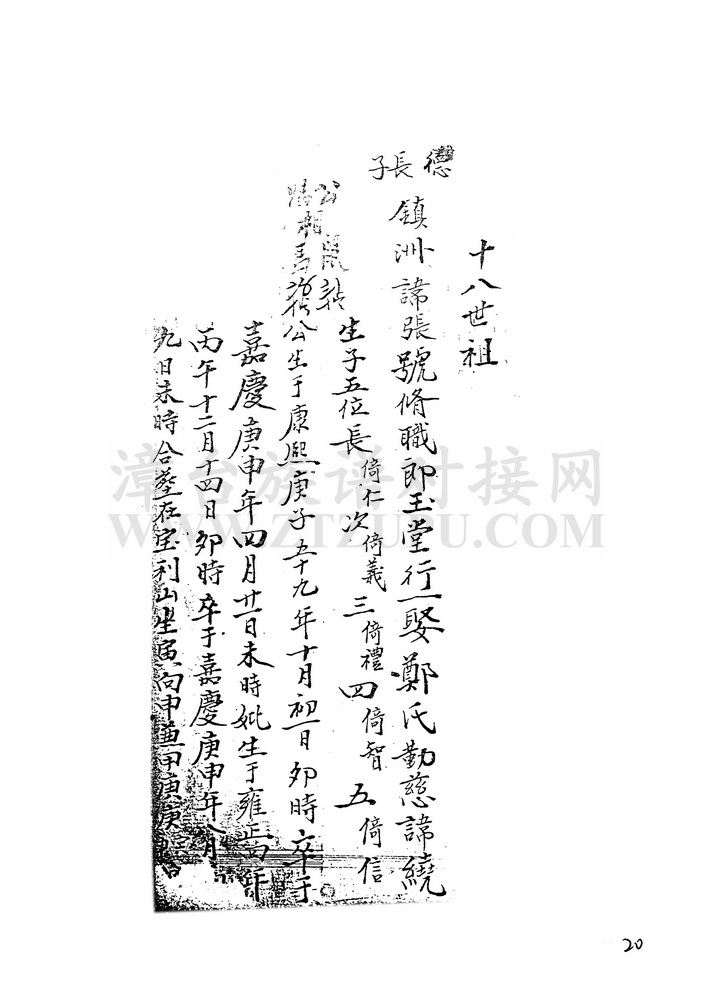 十八世祖
德 長子
鎮洲諱張號脩職郎玉堂行一娶鄭氏勤慈諱繞
生子五位長倚仁次倚義三倚禮四倚智五倚信
公
公生于康熙庚子五十九年十月初一日卯時卒于
嘉慶庚申年四月廿一日未時妣生于雍正丙午
丙午十二月十四日卯時卒于嘉慶庚申年八月
九日未時合塟在宝利山坐寅向申兼甲庚
漳台族谱对接网
WWW.ZTZUPU.COM
20